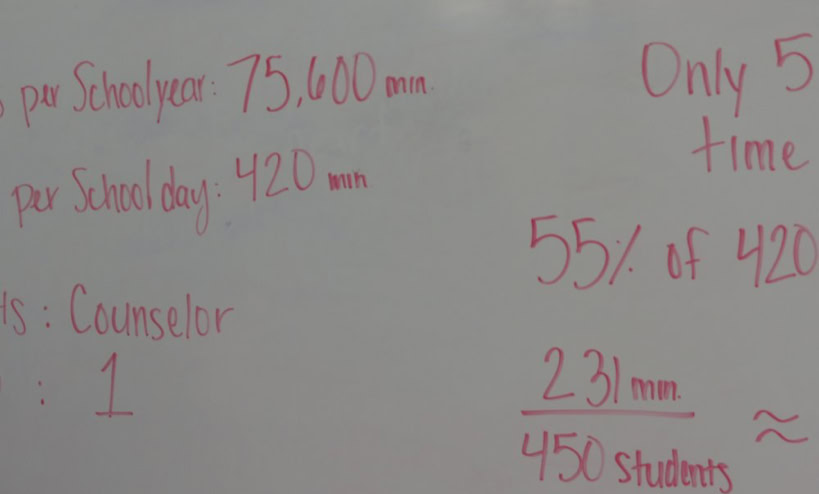 per Schoolyear: 75,600 min.
per School day: 420 min
: Counselor
: 1
Only 5
time
55% of 420
231 min.
450 students ≈